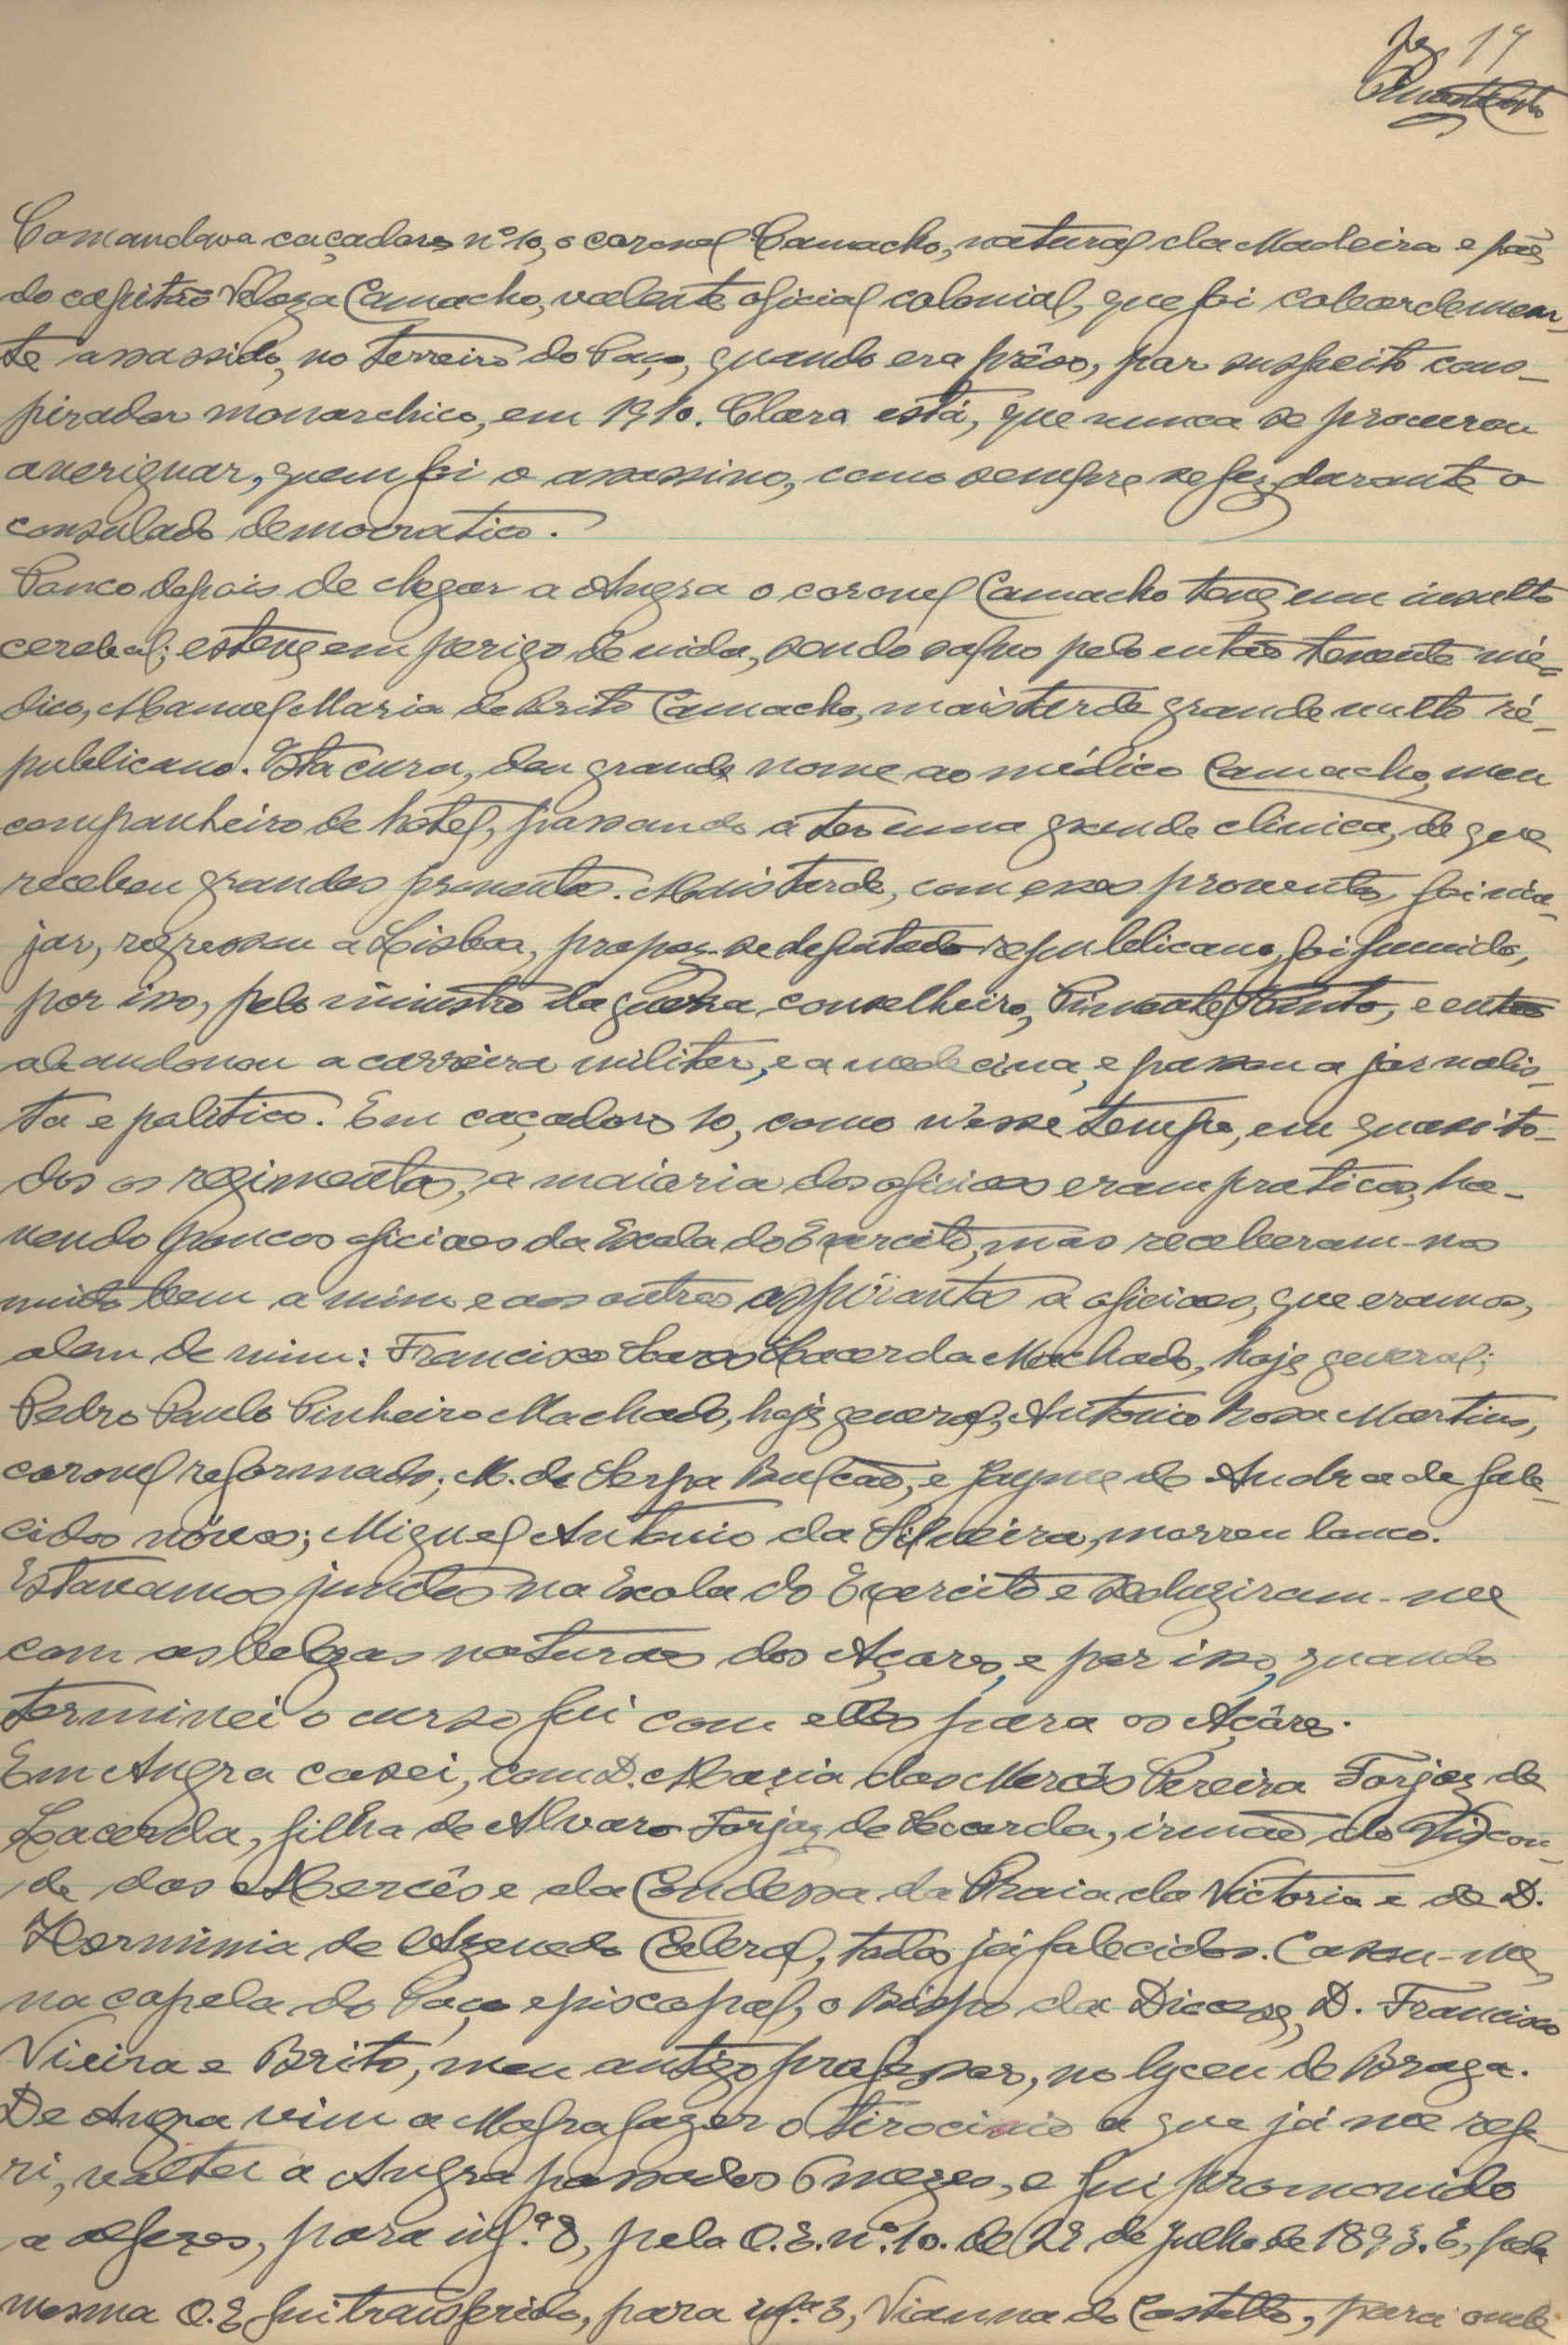 19
Comandava caçadores nº 10, o coronel Camacho, natural da Madeira e pãe
do capitão Veloza Camacho, valente oficial colonial, que foi cobardemen-
te assassido, no Terreiro do Paço, quando era prêso, por suspeito cons-
pirador monarchico, em 1910. Claro está, que nunca se procurou
averiguar, quem foi o assassino, como sempre se fez, durante o
consulado democratico.
Pouco depois de chegar a Angra o coronel Camacho teve um insulto
cerebral; esteve em perigo de vida, sendo salvo pelo então tenente mé-
dico, Manoel Maria de Brito Camacho, mais tarde grande vulto ré-
publicano. Esta cura, deu grande nome ao médico Camacho, meu
companheiro de hotel, passando a ter uma grande clinica, de que
recebeu grandes proventos. Mais tarde, com esses proventos, foi via-
jar, regressou a Lisboa, propoz-se deputado republicano, foi punido,
por isso, pelo ministro da guerra conselheiro, Pimentel Pinto, e então
abandonou a carreira militar, e a medecina, e passou a jornalis-
ta e politico. Em caçadores 10, como n'esse tempo, em quasi to-
dos os regimentos, a maioria dos oficiaes eram praticos, ha-
vendo poucos oficiaes da Escola do Exercito, mas receberam-nos
muito bem a mim e aos outros aspirantes a oficiaes, que eramos,
alem de mim: Francisco Lacerda Machado, hoje general;
Pedro Paulo Pinheiro Machado, hoje general, Antonio Rosa Martins,
coronel reformado; M. de Serpa Bulcão, e Jayme de Andrade fale-
cidos nóvos; Miguel Antonio da Silveira, morreu louco.
Estavamos juntos na Escola do Exercito e seduziram-me
com as belezas naturaes dos Açores, e por isso, quando
terminei o curso fui com elles para os Açôres.
Em Angra casei, com D. Maria das Mercês Pereira Forjaz de
Lacerda, filha de Alvaro Forjaz de Lacerda, irmão do Viscon-
de das Mercês e da Condessa da Praia da Victoria e de D.
Herminia de Azevedo Cabral, todos já falecidos. Casou-me,
na capela do Paço episcopal, o Bispo da Diocese, D. Francisco
Vieira e Brito, meu antigo professor, no lyceu de Braga.
De Angra vim a Mafra fazer o tirocinio a que já me refe-
ri, voltei a Angra passados 6 mezes, e fui promovido
a alferes, para inf.ª 8, pela O.E. nº. 10. de 22 de Julho de 1893. E, pela
mesma O.E fui transferido, para inf.ª 3, Vianna do Castello, para onde